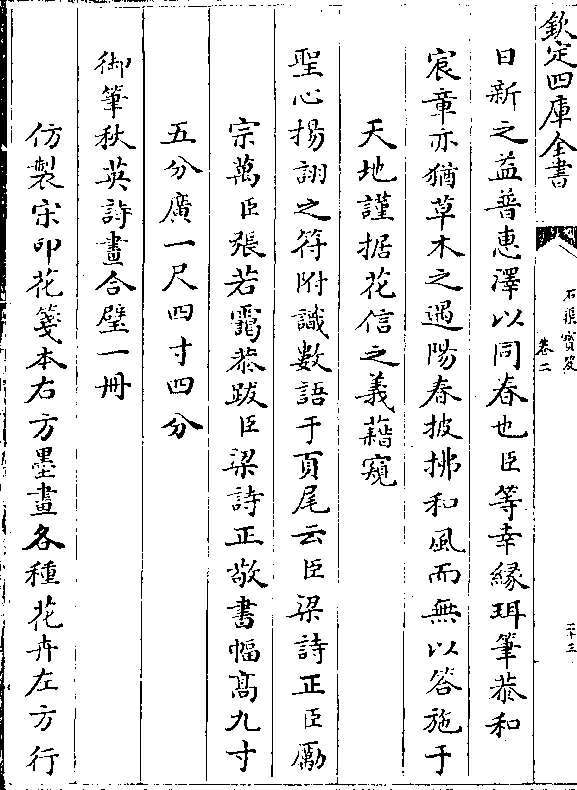 欽定四庫全書
石渠寶笈
卷二
二十三
日新之益普惠澤以同春也臣等幸縁珥筆恭和
宸章亦猶草木之遇陽春披拂和風而無以答施于
天地謹据花信之義藉窺
聖心揚詡之符附識數語于頁尾云臣梁詩正臣勵
宗萬臣張若靄恭跋臣梁詩正敬書幅髙九寸
五分廣一尺四寸四分
御筆秋英詩畫合璧一冊
仿製宋印花箋本右方墨畫各種花卉左方行